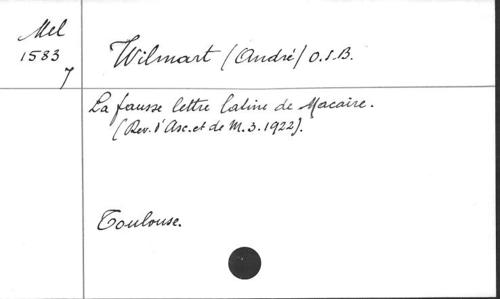 Mel
1583
7
Wilmart (André) O.S.B.
La fausse lettre latine de Macaire.
(Rev. d'Asc. et de M. 3. 1922).
Toulouse.